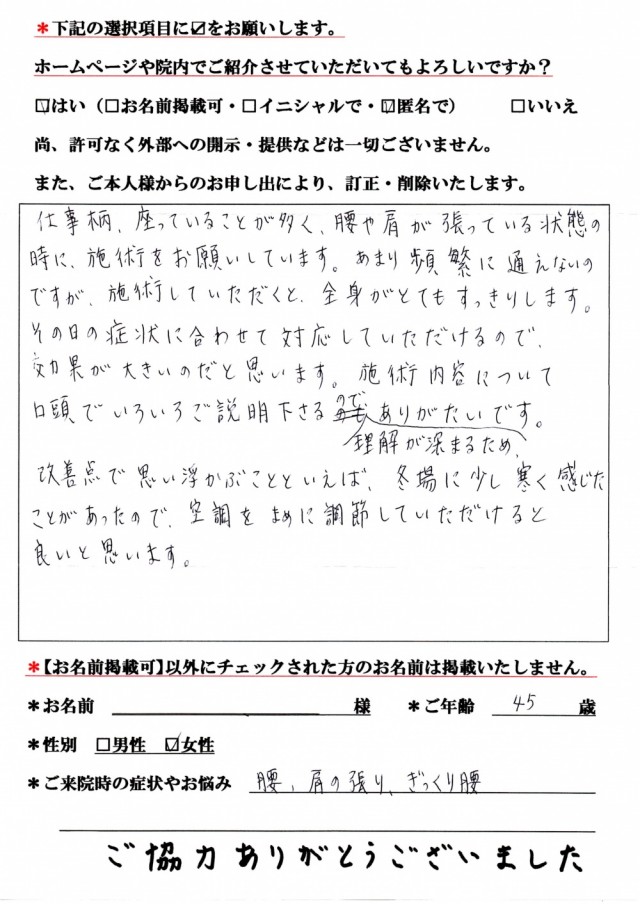 ＊下記の選択項目に☑をお願いします。
ホームページや院内でご紹介させていただいてもよろしいですか？
☑はい（□お名前掲載可・□イニシャルで・☑匿名で）　□いいえ
尚、許可なく外部への開示・提供などは一切ございません。
また、ご本人様からのお申し出により、訂正・削除いたします。
仕事柄、座っていることが多く、腰や肩が張っている状態の
時に、施術をお願いしています。あまり頻繁に通えないの
ですが、施術していただくと、全身がとてもすっきりします。
その日の症状に合わせて対応していただけるので、
効果が大きいのだと思います。施術内容について
口頭でいろいろご説明下さるので ありがたいです。
理解が深まるため、
改善点で思い浮かぶことといえば、冬場に少し寒く感じた
ことがあったので、空調をまめに調節していただけると
良いと思います。
＊【お名前掲載可】以外にチェックされた方のお名前は掲載いたしません。
＊お名前　様　＊ご年齢　45　歳
＊性別　□男性　☑女性
＊ご来院時の症状やお悩み　腰、肩の張り、ぎっくり腰
ご協力ありがとうございました